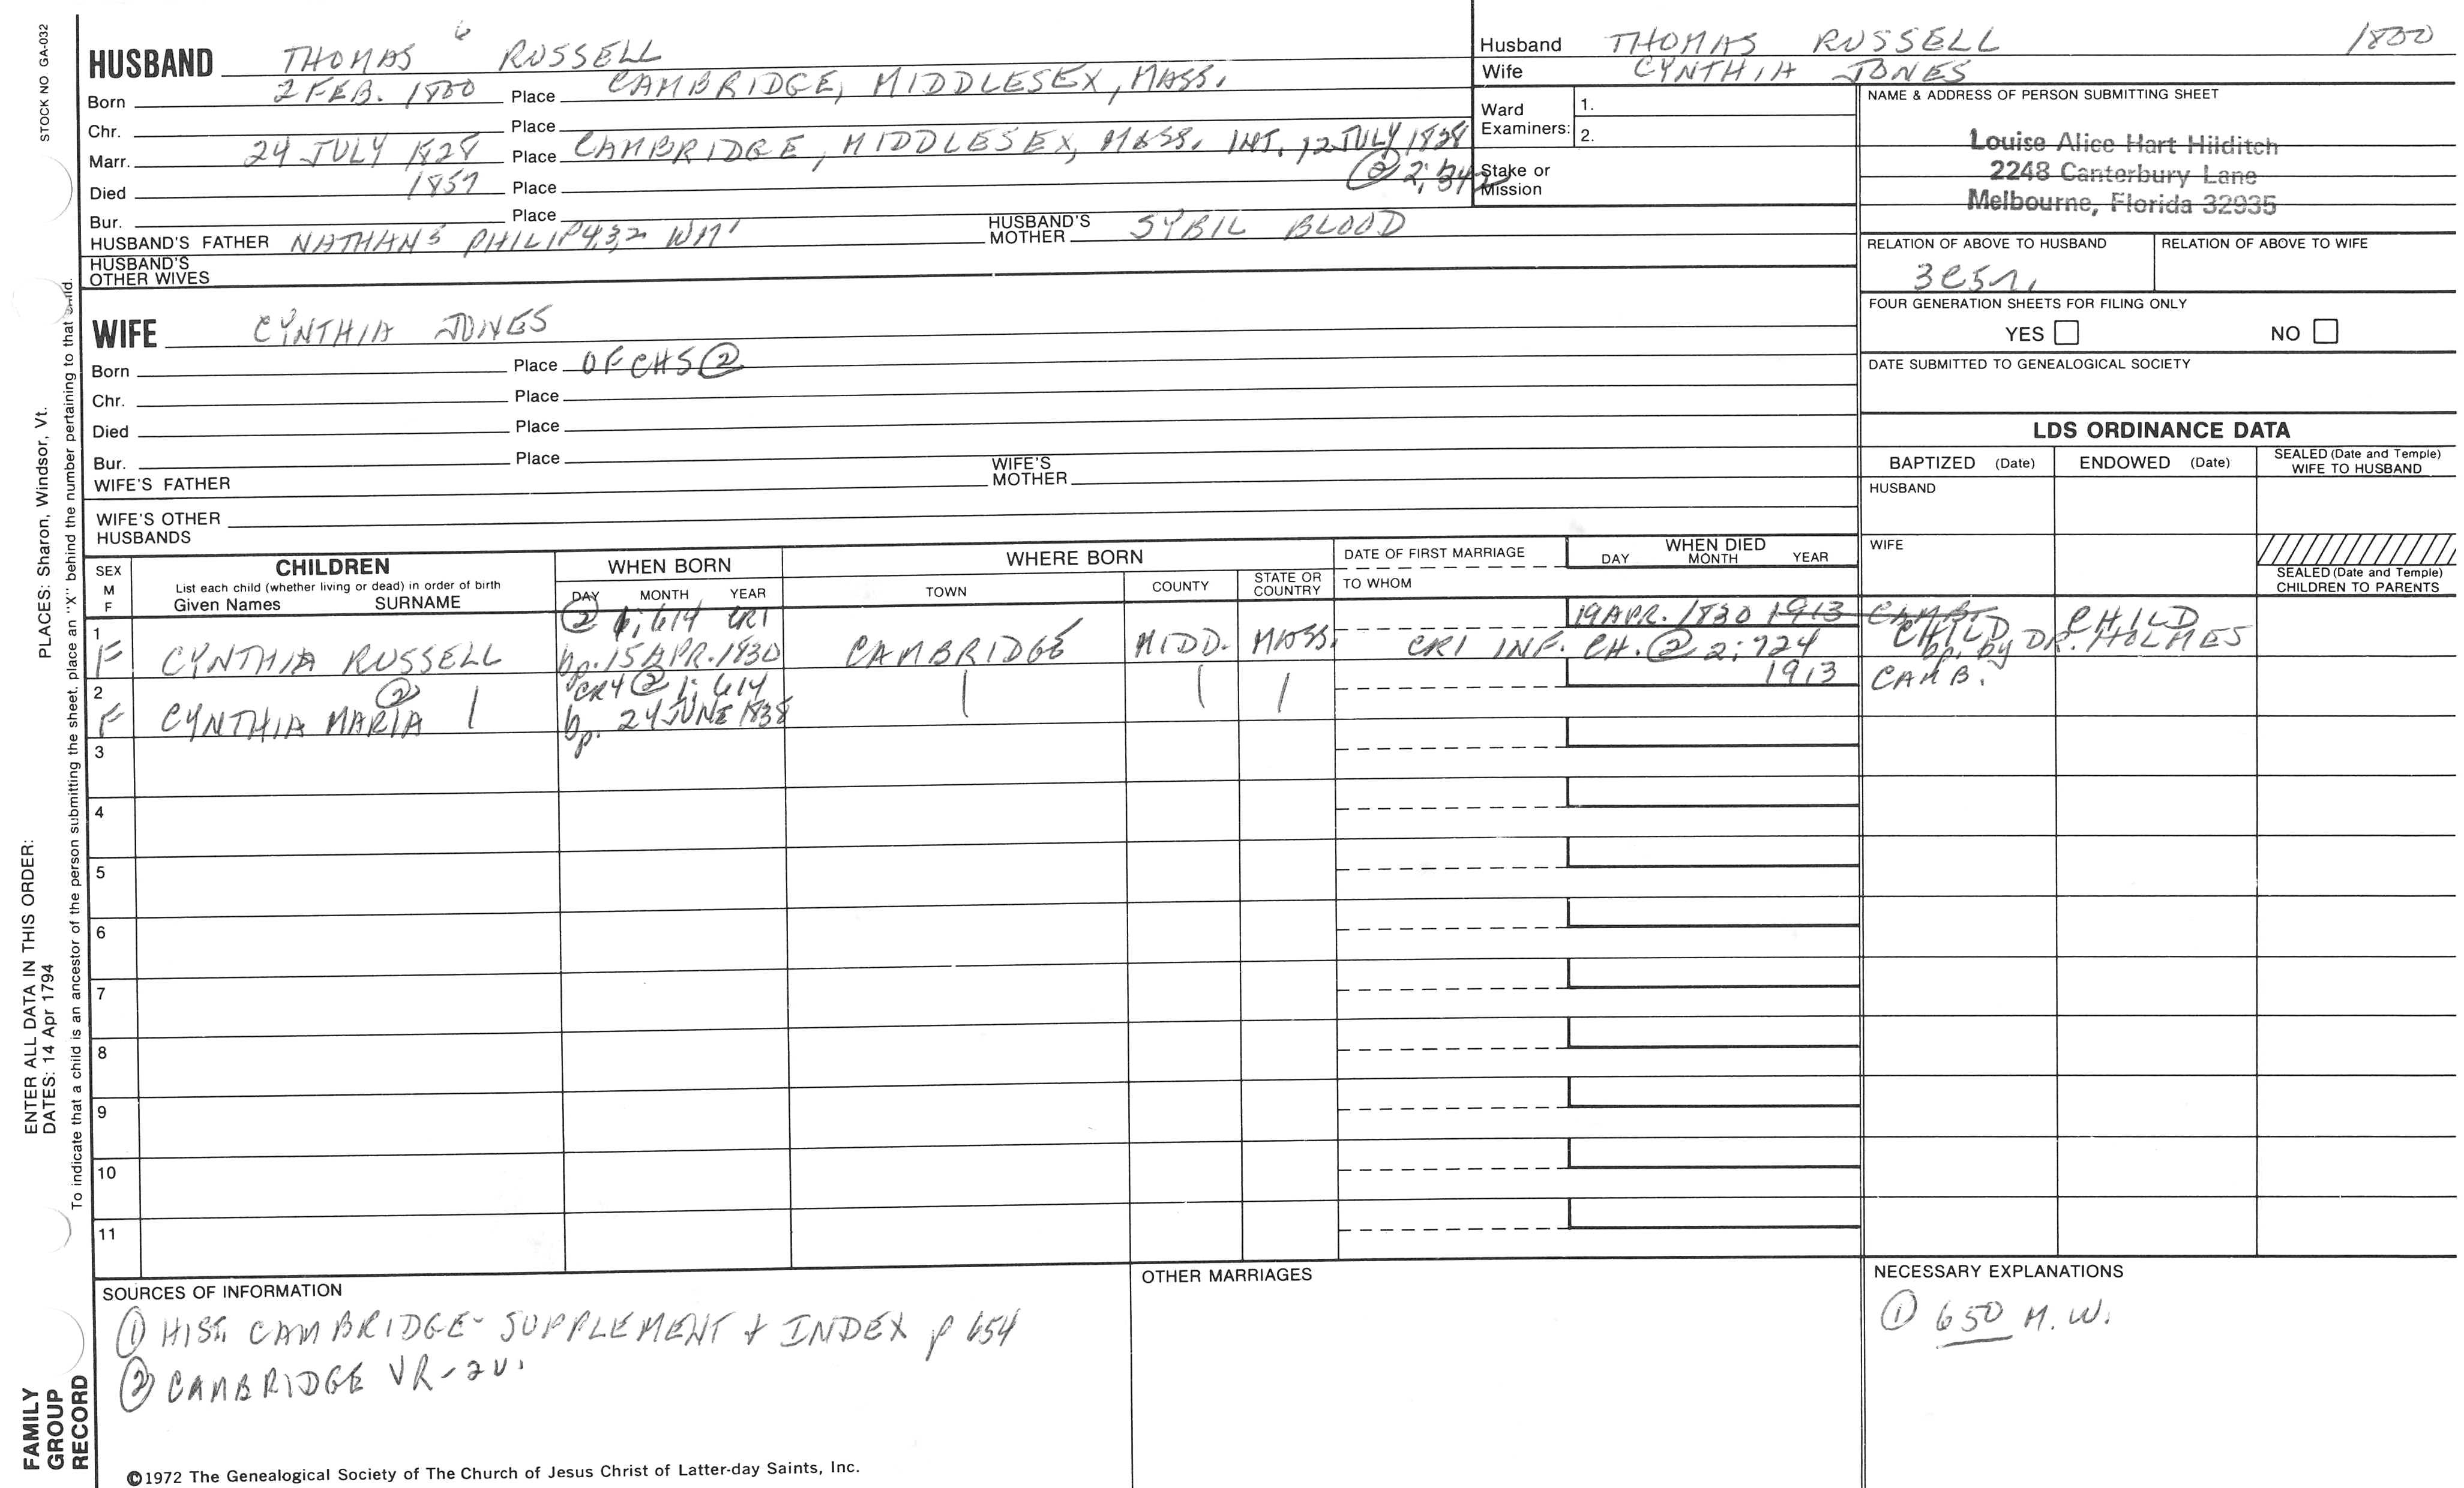 STOCK NO GA-032
HUSBAND THOMAS 6 RUSSELL
Born 2 FEB. 1800 Place CAMBRIDGE, MIDDLESEX, MASS.
Chr. Place
Marr. 24 JULY 1828 Place CAMBRIDGE, MIDDLESEX, MASS. INT. 12 JULY 1828
@ 2; 342
Died 1857 Place
Bur. Place
HUSBAND'S FATHER NATHAN 5 PHILIP 4,3,2 WM 1 HUSBAND'S MOTHER SYBIL BLOOD
HUSBAND'S OTHER WIVES
WIFE CYNTHIA JONES
Born Place OF CHS ②
Chr. Place
Died Place
Bur. Place
WIFE'S FATHER WIFE'S MOTHER
WIFE'S OTHER HUSBANDS
Husband THOMAS RUSSELL 1800
Wife CYNTHIA JONES
Ward Examiners: 1.
2.
Stake or Mission
NAME & ADDRESS OF PERSON SUBMITTING SHEET
Louise Alice Hart Hilditch
2248 Canterbury Lane
Melbourne, Florida 32935
RELATION OF ABOVE TO HUSBAND RELATION OF ABOVE TO WIFE
3C5r.
FOUR GENERATION SHEETS FOR FILING ONLY
YES NO
DATE SUBMITTED TO GENEALOGICAL SOCIETY
LDS ORDINANCE DATA
BAPTIZED (Date) ENDOWED (Date) SEALED (Date and Temple) WIFE TO HUSBAND
HUSBAND
WIFE
SEALED (Date and Temple) CHILDREN TO PARENTS
SEX M F CHILDREN WHEN BORN WHERE BORN DATE OF FIRST MARRIAGE WHEN DIED
List each child (whether living or dead) in order of birth
Given Names SURNAME DAY MONTH YEAR TOWN COUNTY STATE OR COUNTRY TO WHOM DAY MONTH YEAR
1 ② 1; 614 CR1 19 APR. 1830 1913 CAMB. CHILD
F CYNTHIA RUSSELL bp. 15 APR. 1830 CAMBRIDGE MIDD. MASS. CR1 INF. CH. @ 2; 724 CHILD bp. by DR. HOLMES
2 ② CR4 @ 1; 614 1913 CAMB.
F CYNTHIA MARIA bp. 24 JUNE 1838
3
4
5
6
7
8
9
10
11
SOURCES OF INFORMATION
① HIST. CAMBRIDGE - SUPPLEMENT + INDEX p 654
② CAMBRIDGE VR - 2 V.
OTHER MARRIAGES
NECESSARY EXPLANATIONS
① 650 M. W.
©1972 The Genealogical Society of The Church of Jesus Christ of Latter-day Saints, Inc.
PLACES: Sharon, Windsor, Vt.
To indicate that a child is an ancestor of the person submitting the sheet, place an "X" behind the number pertaining to that child.
ENTER ALL DATA IN THIS ORDER:
DATES: 14 Apr 1794
FAMILY GROUP RECORD